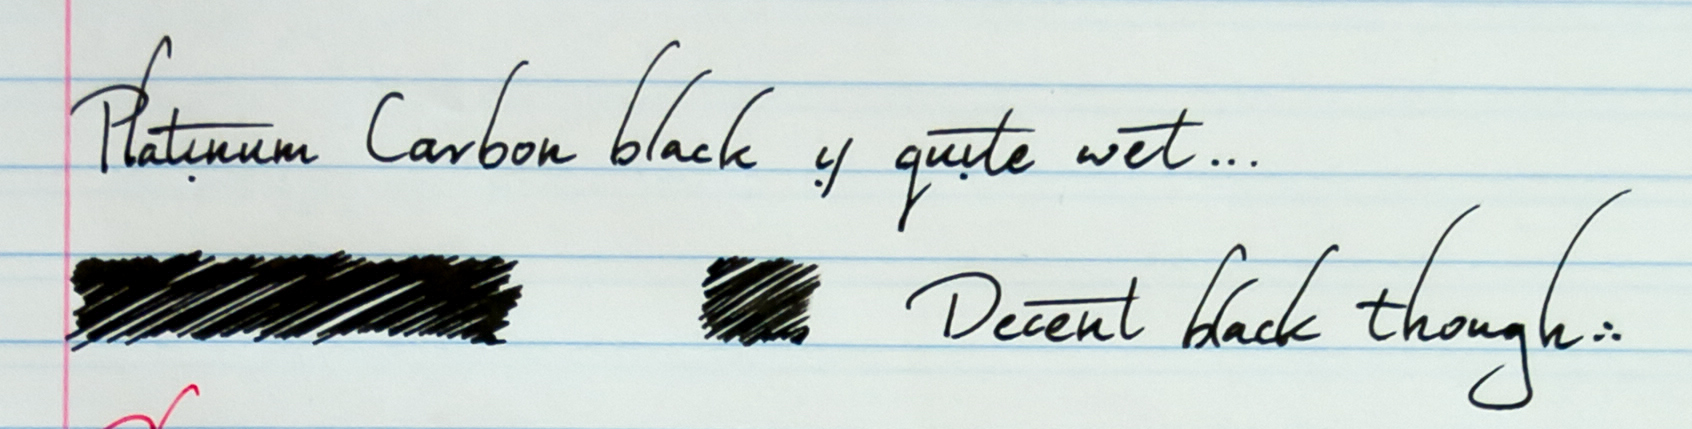 Platinum Carbon black is quite wet...
Decent black though...